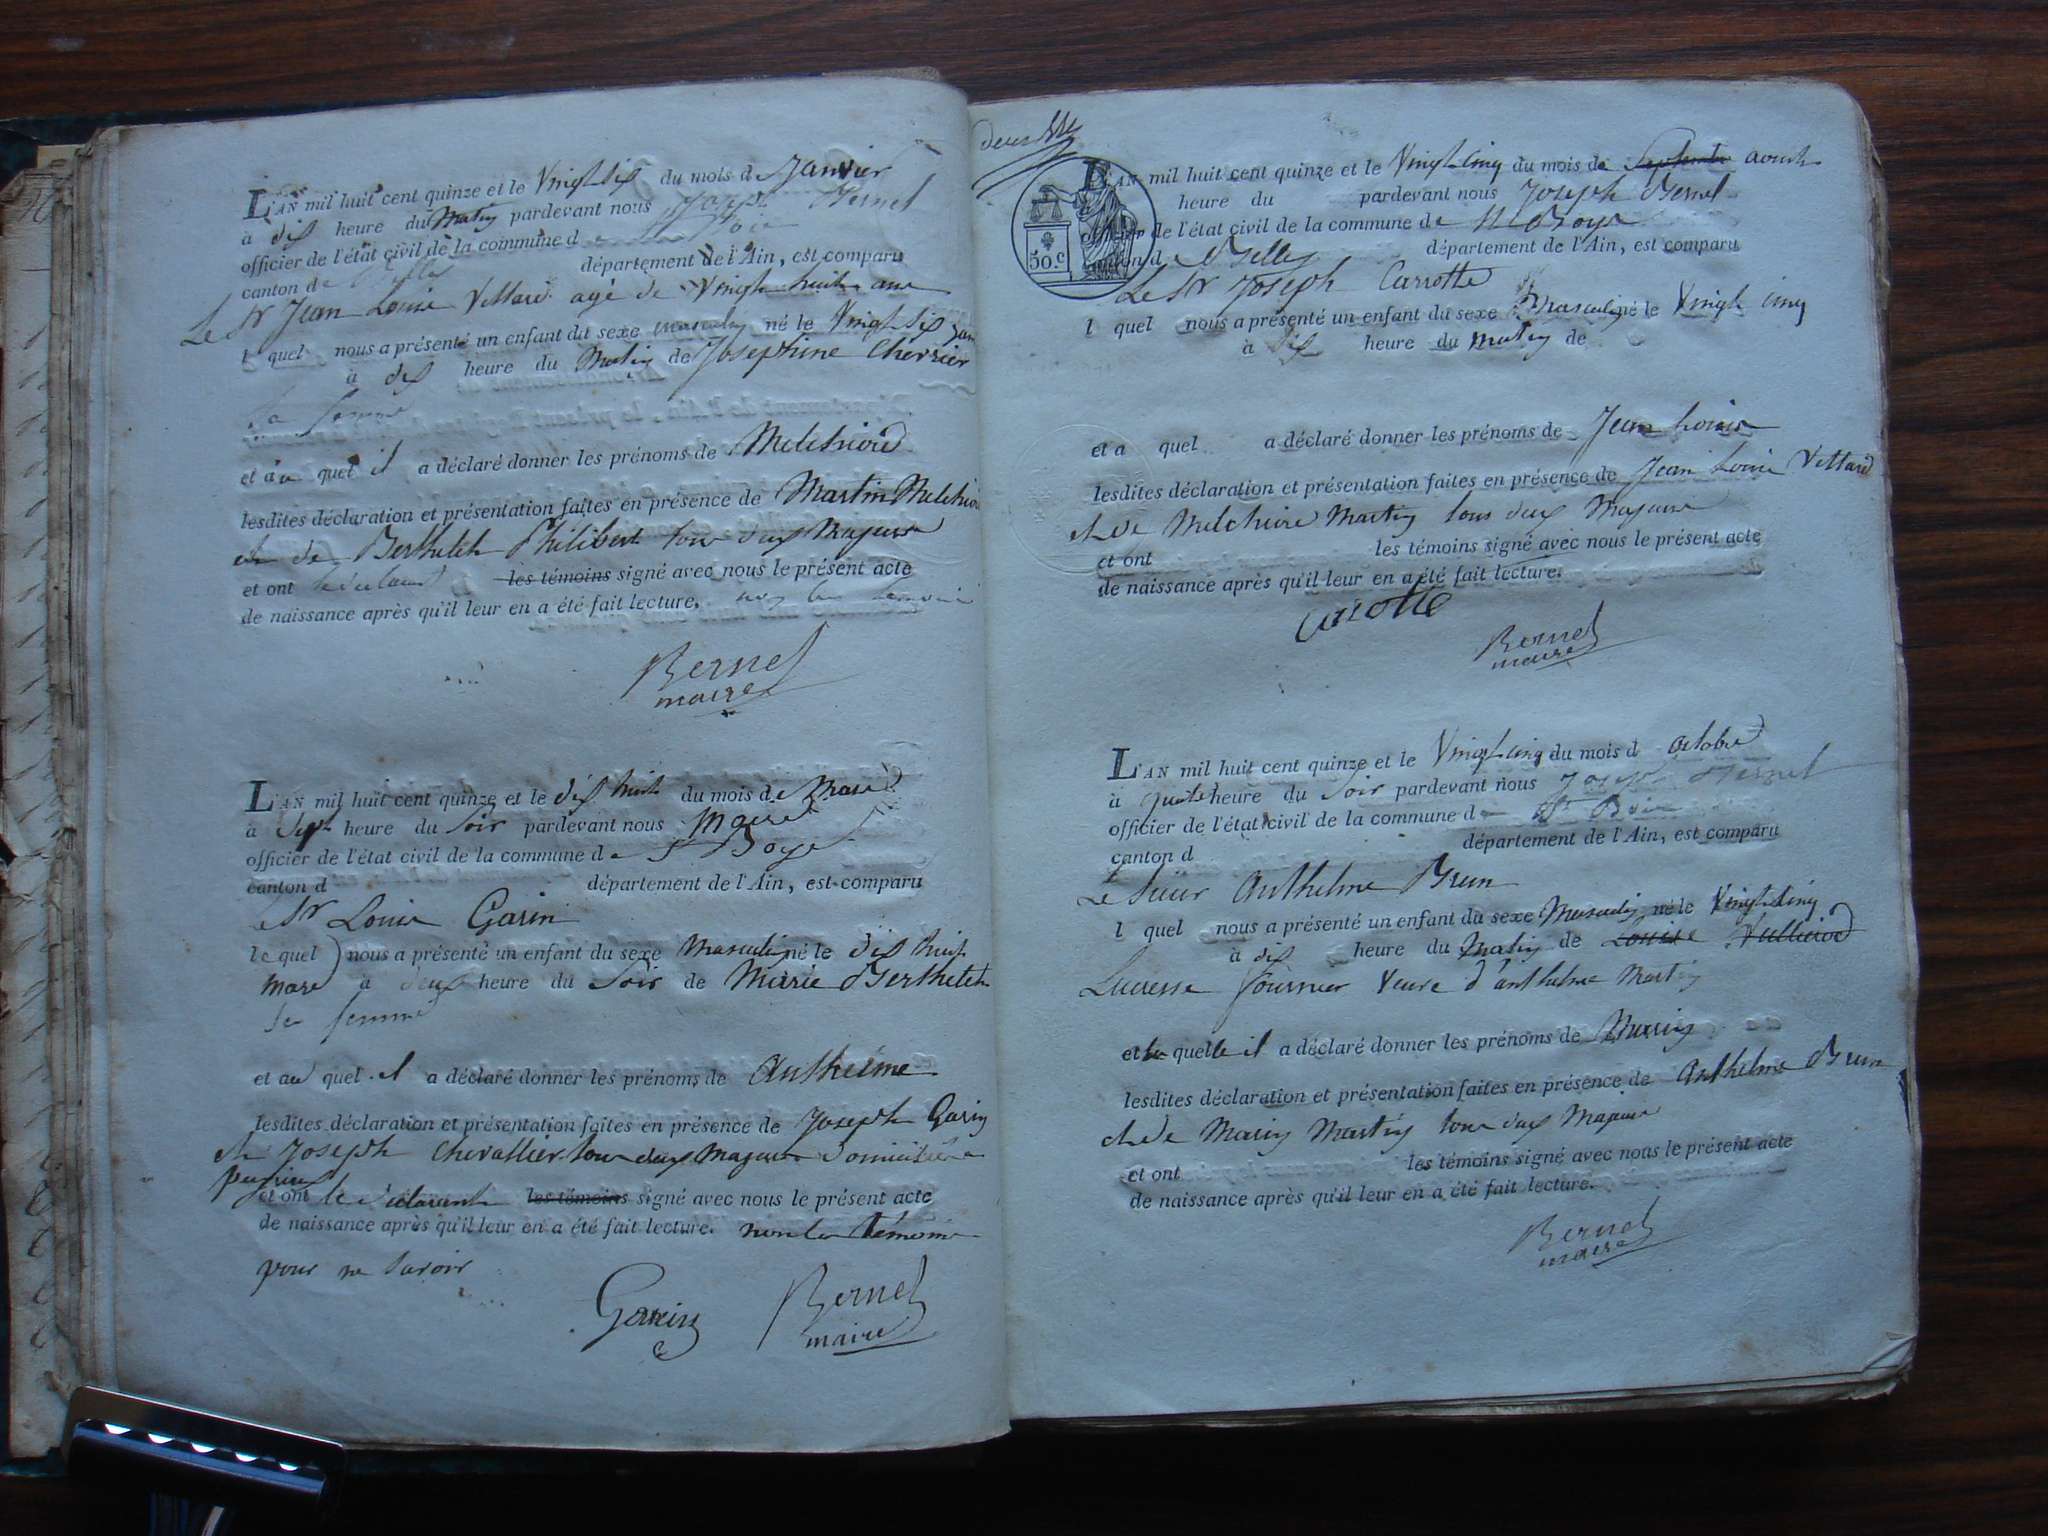 L'AN mil huit cent quinze et le Vingt six du mois de Janvier
à dix heure du Matin pardevant nous Joseph Bernel
officier de l'état civil de la commune de St Boie
canton de Belley département de l'Ain, est comparu
Le Sr Jean Louis Vettard agé de Vingt huit ans
l quel nous a présenté un enfant du sexe masculin né le Vingt six Jan
à dix heure du Matin de Josephine Cherrier
sa femme
et au quel il a déclaré donner les prénoms de Melchiord
lesdites déclaration et présentation faites en présence de Martin Melchior
et de Berthelet Philibert tous deux Majeurs
et ont les témoins signé avec nous le présent acte
de naissance après qu'il leur en a été fait lecture. non les temoins
Bernel
maire
L'AN mil huit cent quinze et le dix huit du mois de Mars
à Sept heure du Soir pardevant nous Maire
officier de l'état civil de la commune de St Boys
canton d département de l'Ain, est comparu
le Sr Louis Garin
le quel nous a présenté un enfant du sexe Masculin né le dix huit
mars à deux heure du Soir de Marie Berthelet
sa femme
et au quel il a déclaré donner les prénoms de Anthelme
lesdites déclaration et présentation faites en présence de Joseph Garin
et Joseph Chevallier tous deux majeurs domiciliés
et ont le déclarant les témoins signé avec nous le présent acte
de naissance après qu'il leur en a été fait lecture. non les témoins
pour ne savoir
Garin Bernel
maire
L'AN mil huit cent quinze et le Vingt cinq du mois de Septembre aoust
heure du pardevant nous Joseph Bernel
officier de l'état civil de la commune de St Boys
canton de Belley département de l'Ain, est comparu
50.c
Le Sr Joseph Carrotte
l quel nous a présenté un enfant du sexe Masculin né le Vingt cinq
à dix heure du matin de
et a quel a déclaré donner les prénoms de Jean Louis
lesdites déclaration et présentation faites en présence de Jean Louis Vettard
et de Melchior Martin tous deux Majeurs
et ont les témoins signé avec nous le présent acte
de naissance après qu'il leur en a été fait lecture.
carotte
Bernel
maire
L'AN mil huit cent quinze et le Vingt cinq du mois d octobre
à quatre heure du Soir pardevant nous Joseph Bernel
officier de l'état civil de la commune de St Boie
canton d département de l'Ain, est comparu
Le Sieur Anthelme Brun
l quel nous a présenté un enfant du sexe Masculin né le Vingt Cinq
à dix heure du Matin de Louise Vullierod
Lucresse fournier Veuve d'anthelme Martin
et la quelle il a déclaré donner les prénoms de Marin
lesdites déclaration et présentation faites en présence de Anthelme Brun
et de Marin Martin tous deux Majeurs
et ont les témoins signé avec nous le présent acte
de naissance après qu'il leur en a été fait lecture.
Bernel
maire